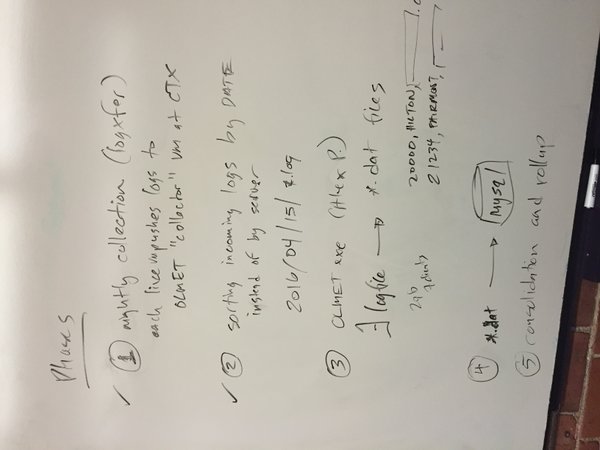 Phases
✓ ① nightly collection (logxfer)
each livevm pushes logs to
OLMET "collector" vm at CTX
✓ ② sorting incoming logs by DATE
instead of by server
2016/04/15/*.log
③ OLMET.exe (Alex P.)
logfile → *.dat files
20000, HILTON,
21234, FAIRMONT,
④ *.dat → MySQL
⑤ consolidation and rollup